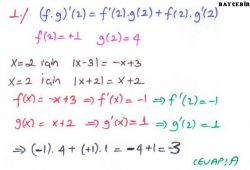 BAYCEBİR
1-/ (f.g)'(2) = f'(2).g(2) + f(2).g'(2)
f(2) = +1 g(2) = 4
x=2 için |x-3| = -x+3
x=2 için |x+2| = x+2
f(x) = -x+3 ⇒ f'(x) = -1 ⇒ f'(2) = -1
g(x) = x+2 ⇒ g'(x) = 1 ⇒ g'(2) = 1
⇒ (-1).4 + (+1).1 = -4+1 = -3
CEVAP: A